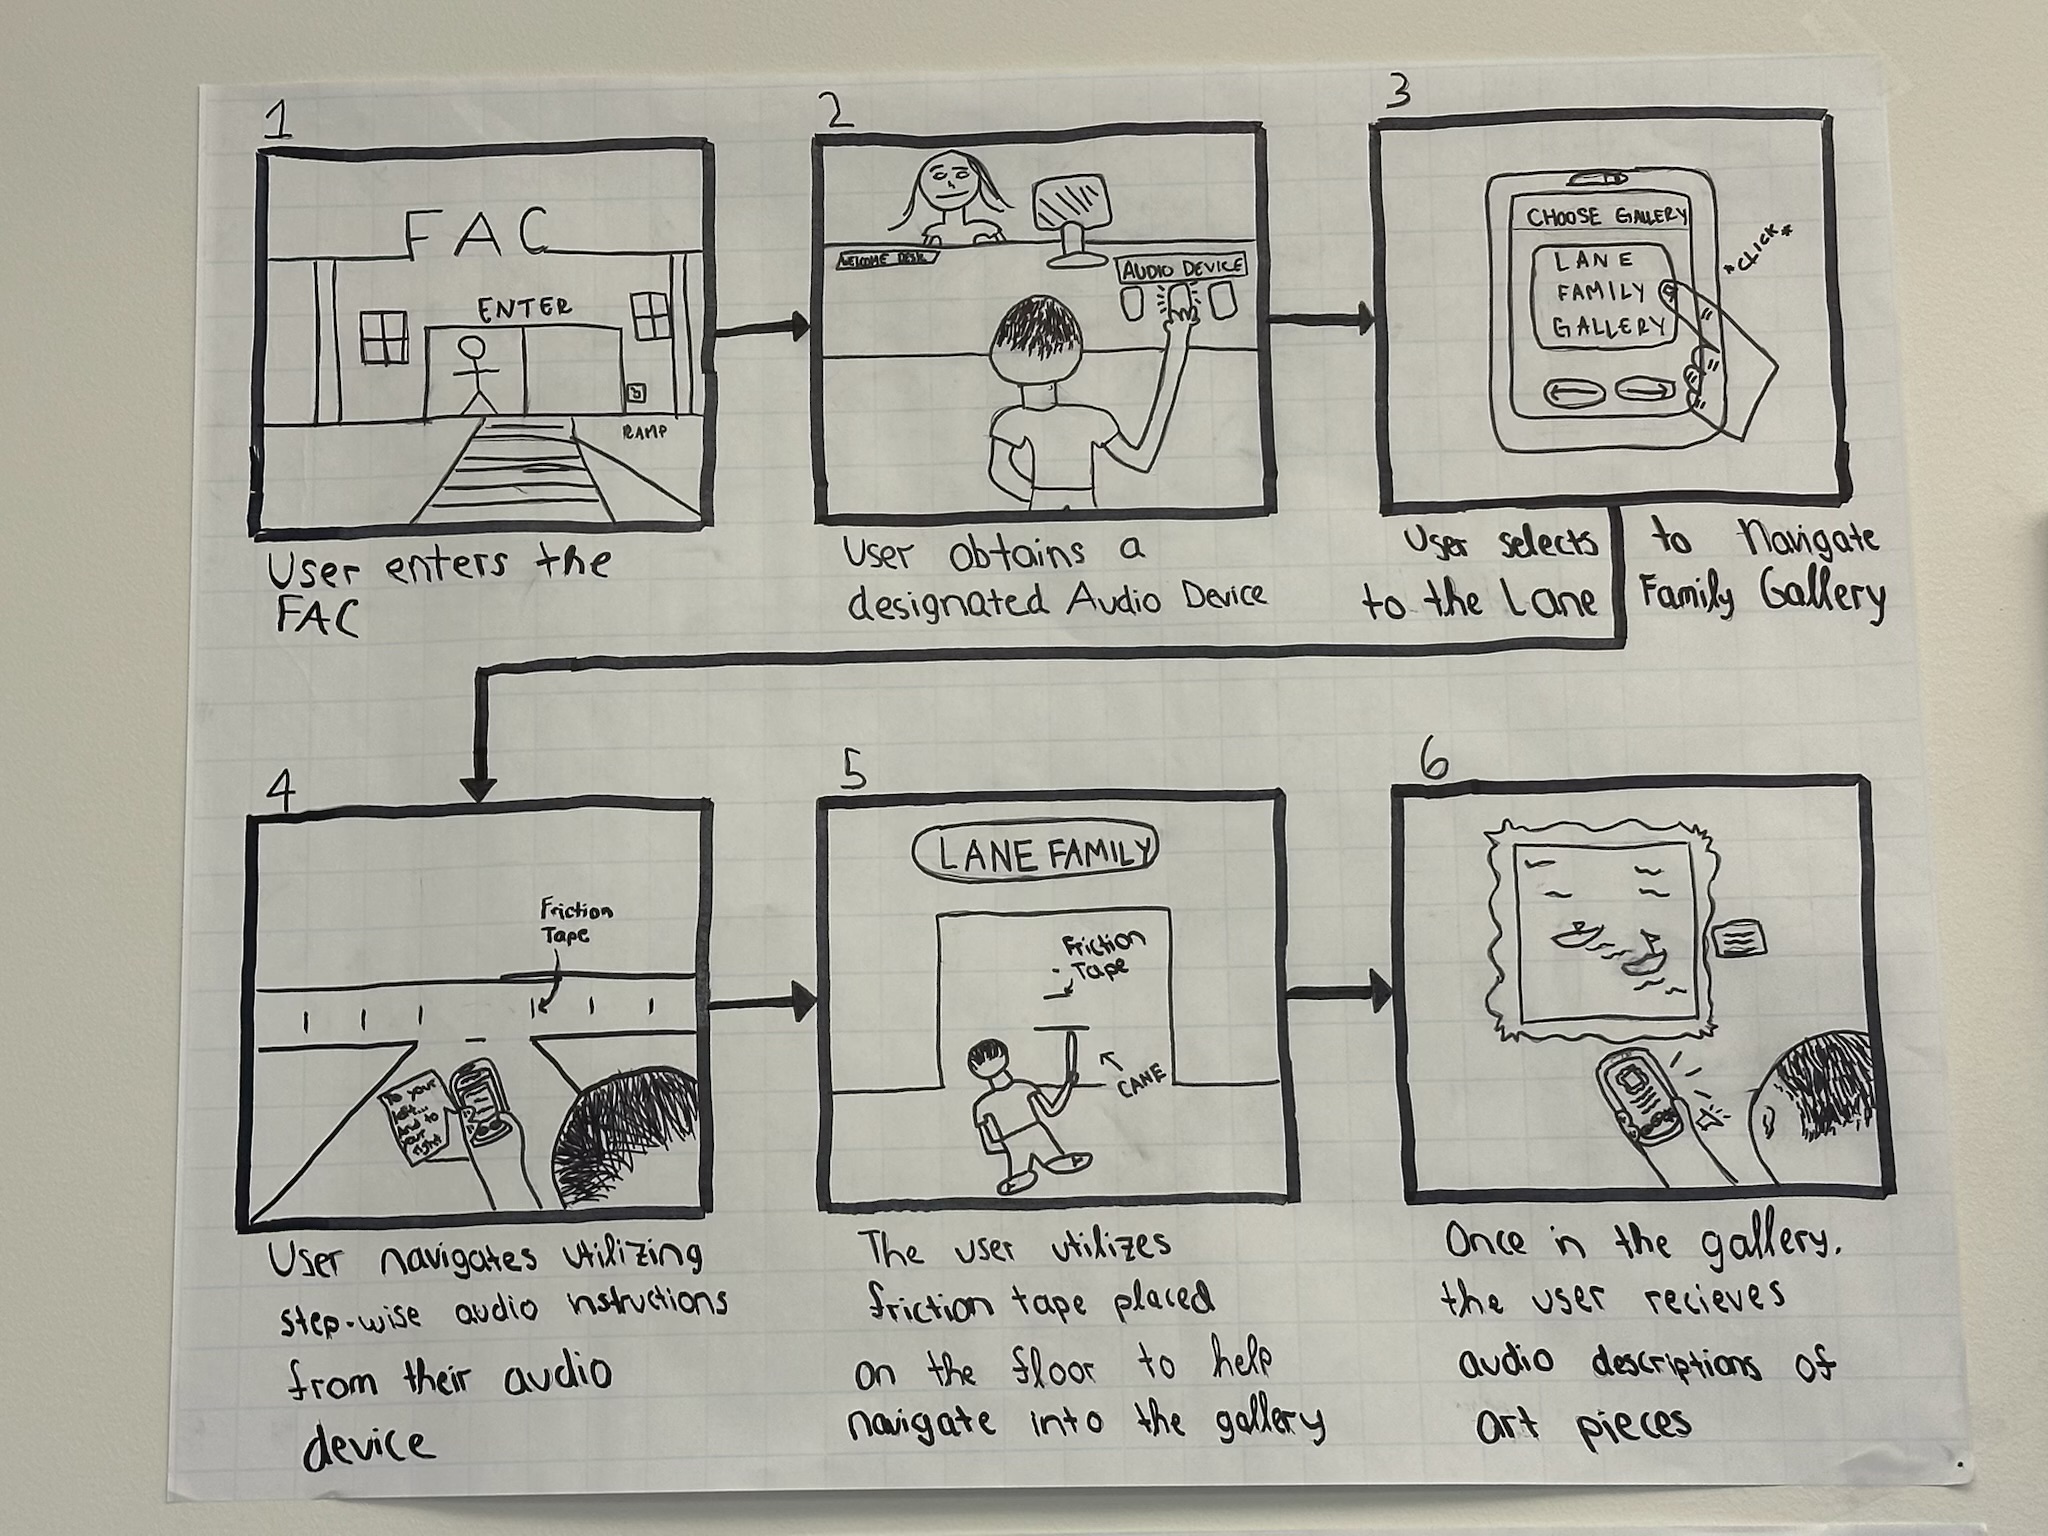 1
FAC
ENTER
RAMP
User enters the
FAC
2
WELCOME DESK
AUDIO DEVICE
User obtains a
designated Audio Device
3
CHOOSE GALLERY
LANE
FAMILY
GALLERY
*CLICK*
User selects to Navigate
to the Lane Family Gallery
4
Friction
Tape
To your
left...
and to
your
right
User navigates utilizing
step-wise audio instructions
from their audio
device
5
LANE FAMILY
Friction
Tape
CANE
The user utilizes
friction tape placed
on the floor to help
navigate into the gallery
6
Once in the gallery.
the user recieves
audio descriptions of
art pieces